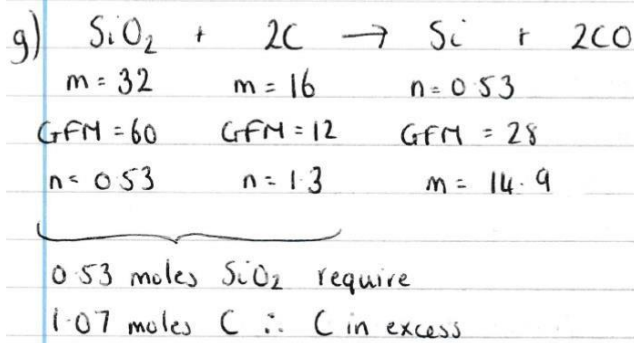 g) SiO₂ + 2C → Si + 2CO
m = 32 m = 16 n = 0.53
GFM = 60 GFM = 12 GFM = 28
n = 0.53 n = 1.3 m = 14.9
0.53 moles SiO₂ require
1.07 moles C ∴ C in excess